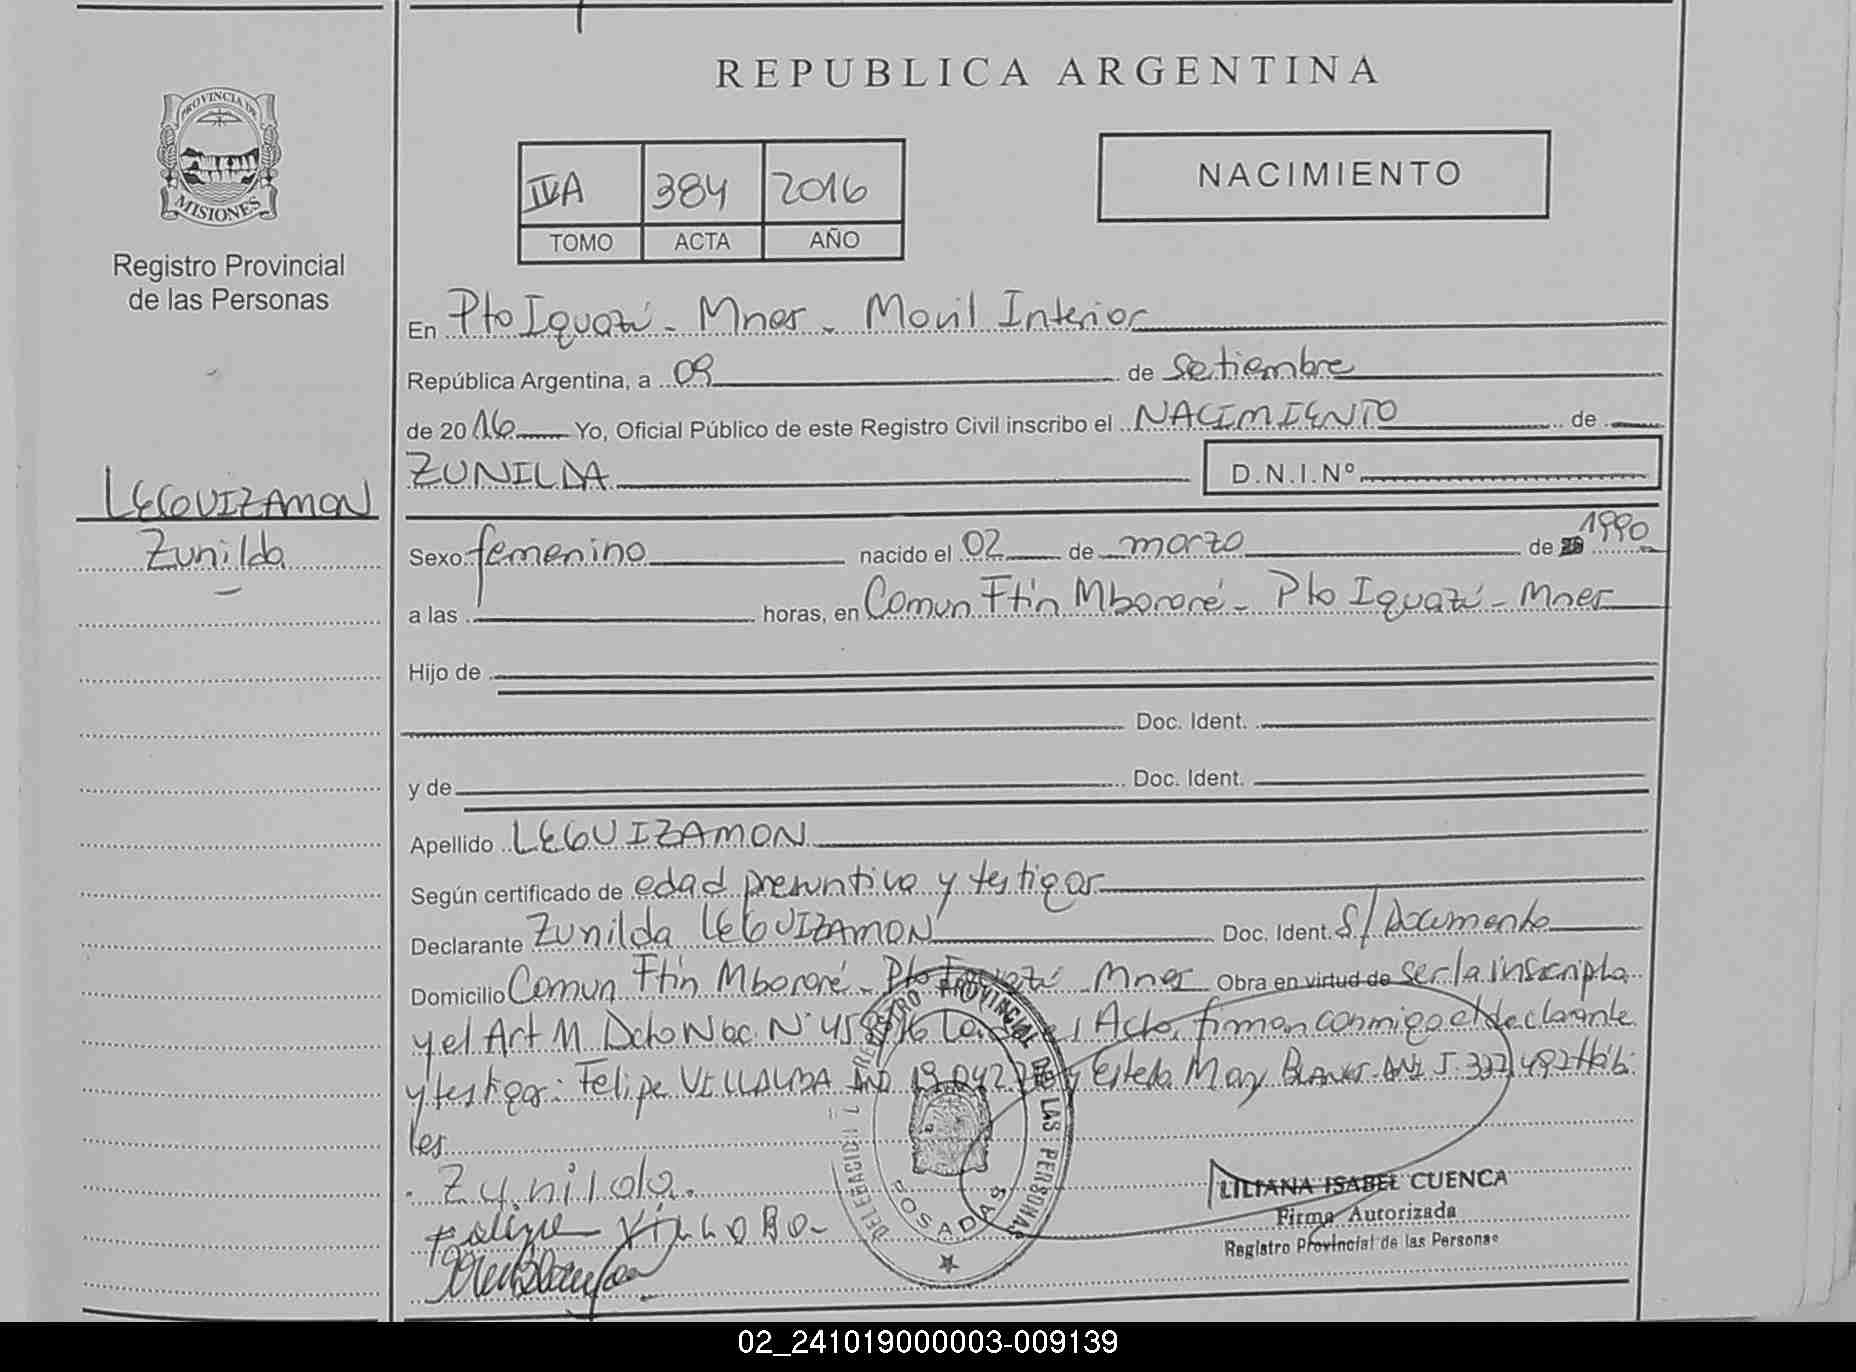 REPUBLICA ARGENTINA
PROVINCIA DE
MISIONES
Registro Provincial
de las Personas
IVA 384 2016
TOMO ACTA AÑO
NACIMIENTO
En Pto Iguazú - Mnes - Movil Interior
República Argentina, a 09 de Setiembre
de 2016 Yo, Oficial Público de este Registro Civil inscribo el NACIMIENTO de
ZUNILDA D.N.I.Nº
LEGUIZAMON
Zunilda
Sexo femenino nacido el 02 de marzo de 1990
a las horas, en Comun Ftin Mbororé - Pto Iguazú - Mnes
Hijo de
Doc. Ident.
y de Doc. Ident.
Apellido LEGUIZAMON
Según certificado de edad presuntiva y testigos
Declarante Zunilda LEGUIZAMON Doc. Ident. S/ Documento
Domicilio Comun Ftin Mbororé - Pto Iguazú - Mnes Obra en virtud de ser la inscripta
y el Art 11 Dcto Nac N° Acta, firman conmigo el declarante
y testigos: Felipe VILLALBA DNI y Estela Mary
les
Zunilda.
Felipe
REGISTRO PROVINCIAL DE LAS PERSONAS
DELEGACION
POSADAS
LILIANA ISABEL CUENCA
Firma Autorizada
Registro Provincial de las Personas
02_241019000003-009139